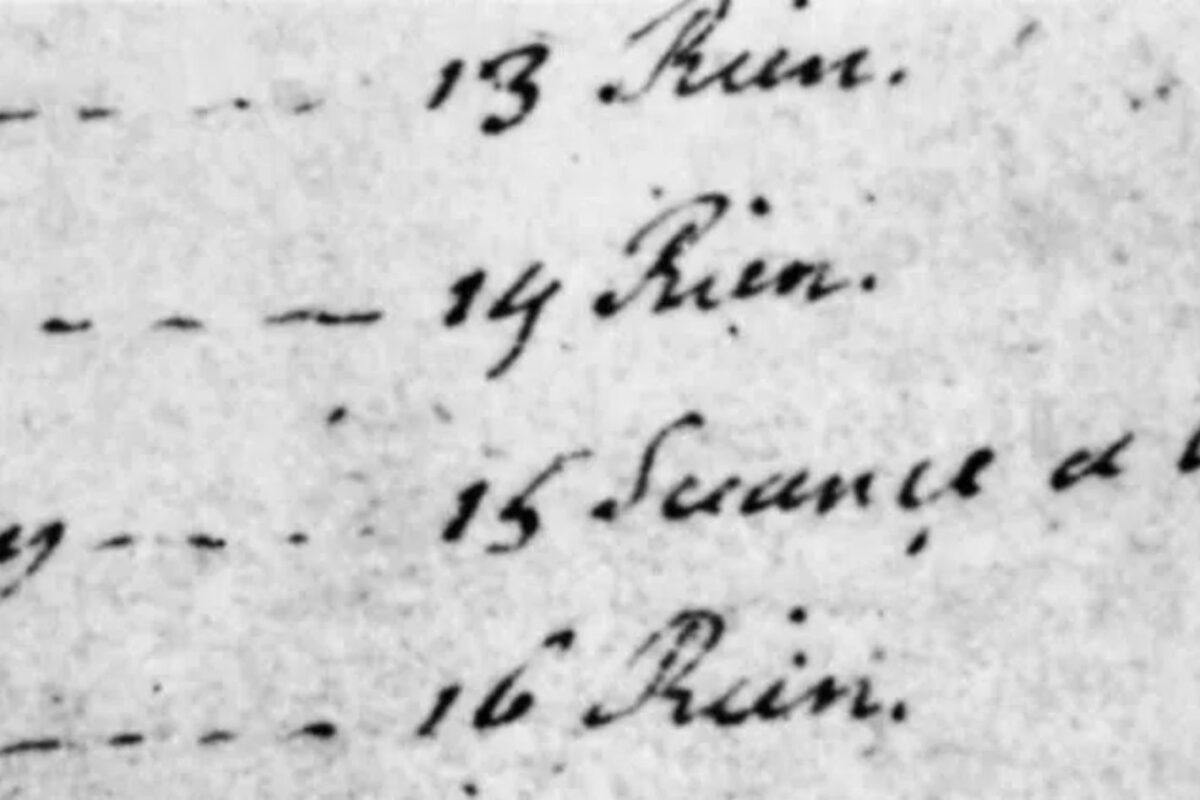 13 Rien.
14 Rien.
15 Seance a
16 Rien.